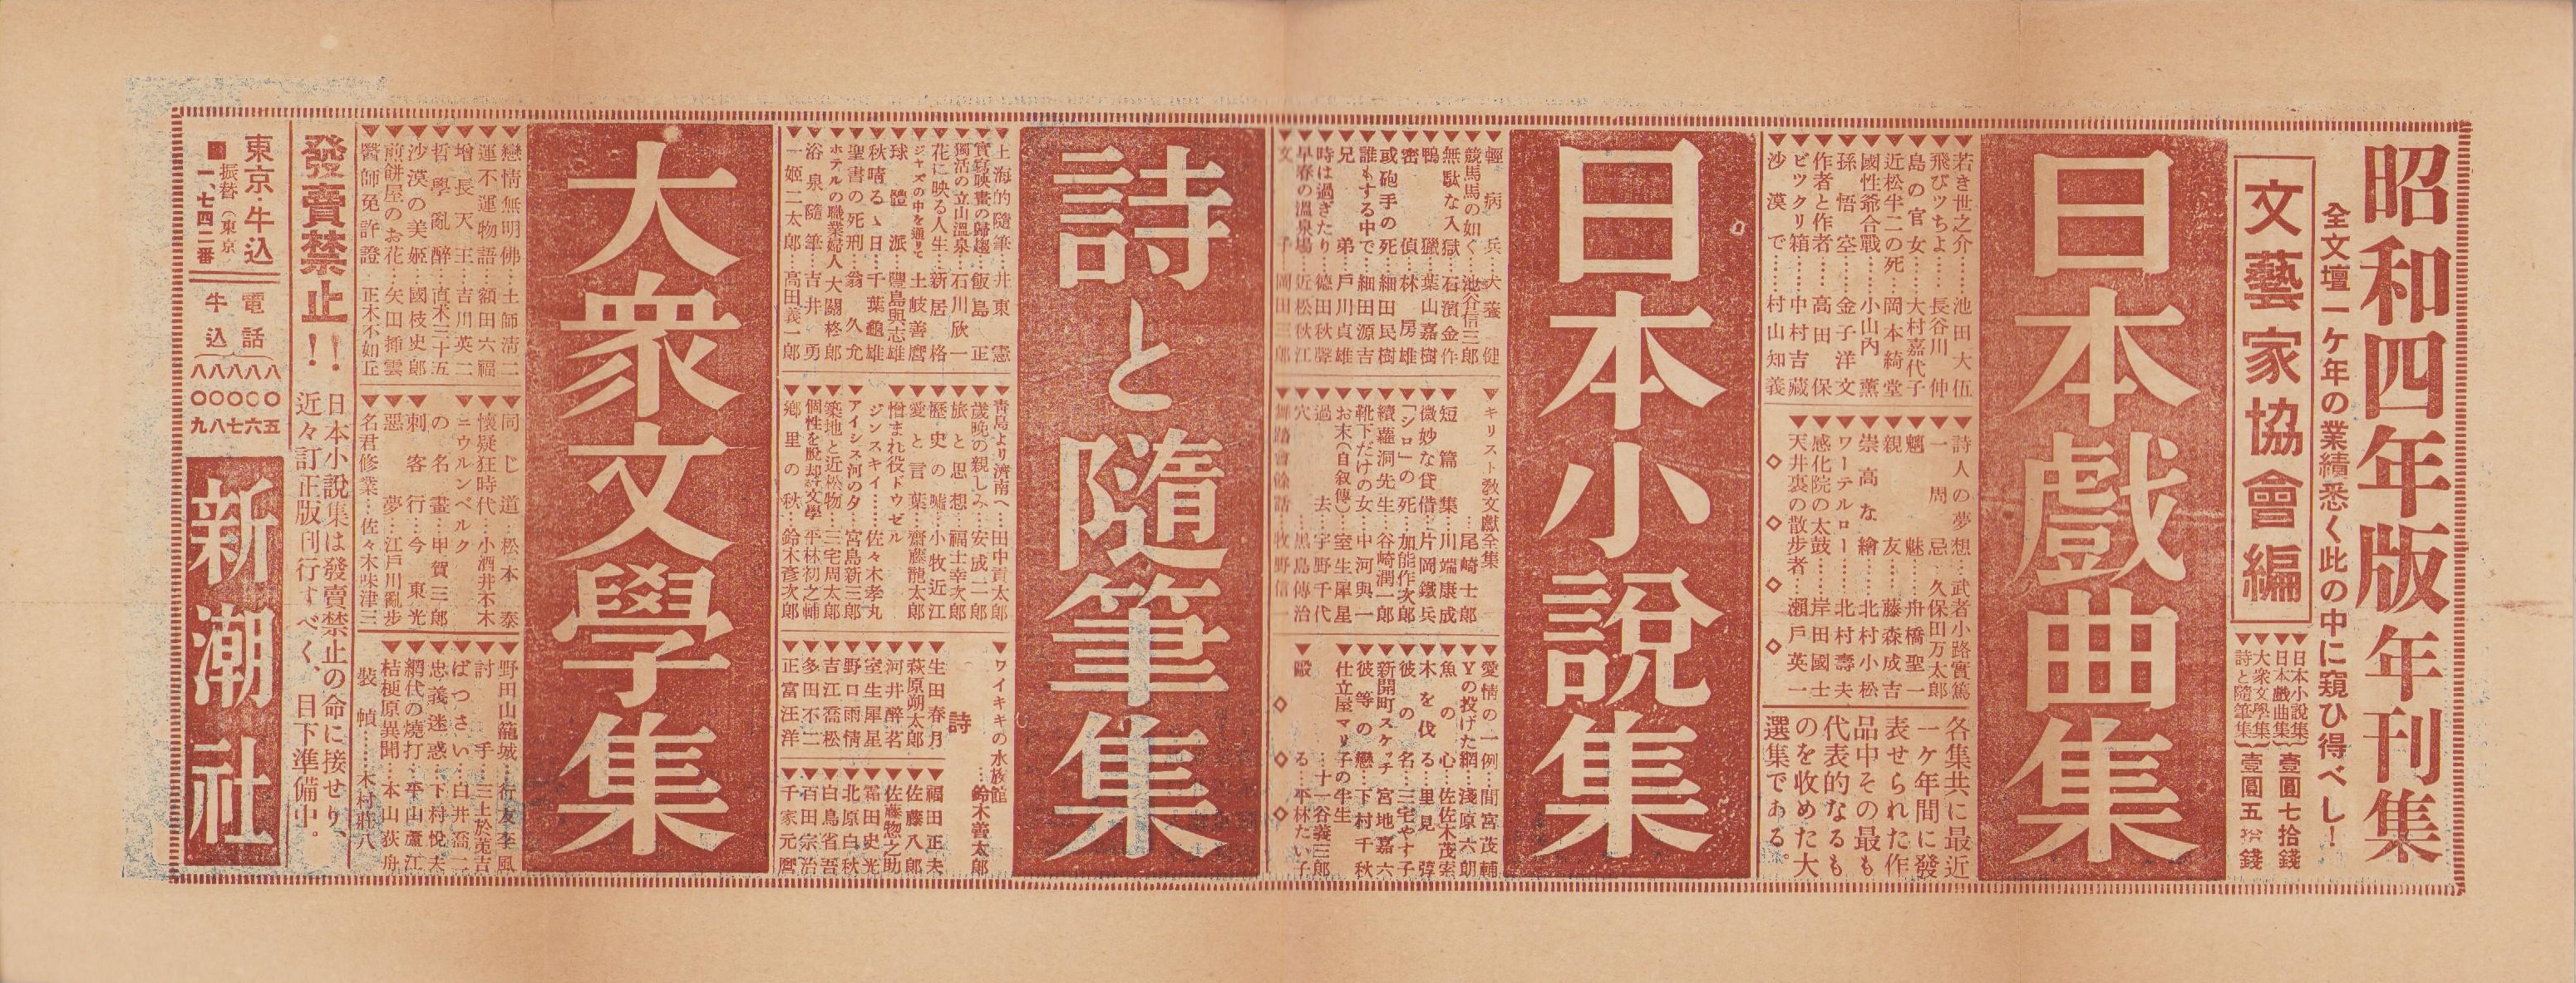 昭和四年版年刊集
全文壇一ケ年の業績悉く此の中に窺ひ得べし！
文藝家協會編
日本小説集
日本戯曲集
壹圓七拾錢
大衆文學集
詩と隨筆集
壹圓五拾錢
日本戲曲集
若き世之介……池田大伍
飛びツちよ……長谷川伸
島の官女……大村嘉代子
近松半二の死……岡本綺堂
國性爺合戰……小山内薫
孫悟空……金子洋文
作者と作者……高田保
ビツクリ箱……中村吉藏
沙漠で……村山知義
詩人の夢想……武者小路實篤
一周忌……久保田万太郎
魑魅……舟橋聖一
親友……藤森成吉
崇高な繪……北村小松
ワーテルロー……北村壽夫
感化院の太鼓……岸田國士
天井裏の散步者……瀬戸英一
各集共に最近
一ケ年間に發
表せられた作
品中その最も
代表的なるも
のを收めた大
選集である。
日本小說集
輕病兵…大養健
競馬馬の如く…池谷信三郎
無駄な入獄…石濱金作
鴨獵…葉山嘉樹
密偵…林房雄
或砲手の死…細田民樹
誰もする中で…細田源吉
兄弟…戸川貞雄
時は過ぎたり…德田秋聲
早春の溫泉場…近松秋江
文子…岡田三郎
キリスト敎文獻全集……尾崎士郎
短篇集…川端康成
微妙な貸借…片岡鐵兵
「シロ」の死…加能作次郎
續蘿洞先生…谷崎潤一郎
靴下だけの女…中河與一
お末（自叙傳）…室生犀星
過去…宇野千代
穴…黒島傳治
舞踏會餘話…牧野信一
愛情の一例…間宮茂輔
Yの投げた網…淺原六朗
魚の心…佐佐木茂索
木を伐る…里見弴
彼の名…三宅やす子
新開町スケッチ…宮地嘉六
彼等の戀…下村千秋
仕立屋マリ子の半生……十一谷義三郎
毆る…平林たい子
詩と隨筆集
上海的隨筆…井東憲
實寫映畫の歸趨…飯島正
獨活の立山溫泉…石川欣一
花に映る人生…新居格
ジャズの中を通りて…土岐善麿
球體派…豐島與志雄
秋晴るゝ日…千葉龜雄
聖書の死刑…翁久允
ホテルの職業婦人…大關柊郎
浴泉隨筆…吉井勇
一姬二太郎…高田義一郎
靑島より濟南へ…田中貢太郎
歲晩の親しみ…安成二郎
旅と思想…福士幸次郎
歷史の嘘…小牧近江
愛と言葉…齋藤龍太郎
憎まれ役ドウゼル
ジンスキイ……佐々木孝丸
アイシス河の夕…宮島新三郎
築地と近松物…三宅周太郎
個性を脱却る文學…平林初之輔
鄕里の秋…鈴木彥次郎
ワイキキの水族館……鈴木善太郎
詩
生田春月
萩原朔太郎
河井醉茗
室生犀星
野口雨情
吉江喬松
多田不二
正富汪洋
福田正夫
佐藤八郎
佐藤惣之助
霜田史光
北原白秋
白鳥省吾
百田宗治
千家元麿
大衆文學集
戀情無明佛…土師淸二
運不運物語…額田六福
增長天王…吉川英二
哲學亂醉…直木三十五
沙漠の美姬…國枝史郎
煎餠屋のお花…矢田挿雲
醫師免許證…正木不如丘
同じ道…松本泰
懷疑狂時代…小酒井不木
ニウルンベルク
の名畫…甲賀三郎
刺客行…今東光
惡夢…江戸川亂步
名君修業…佐々木味津三
野田山籠城…行友李風
討手…三上於菟吉
ばつさい…白井喬二
忠義迷惑…下村悅夫
網代の燒打…平山蘆江
桔梗原異聞…本山荻舟
裝幀……木村莊八
發賣禁止！！
日本小說集は發賣禁止の命に接せり、
近々訂正版刊行すべく、目下準備中。
東京・牛込
■振替（東京）一、七四二番
電話
牛込
八〇五
八〇六
八〇七
八〇八
八〇九
新潮社